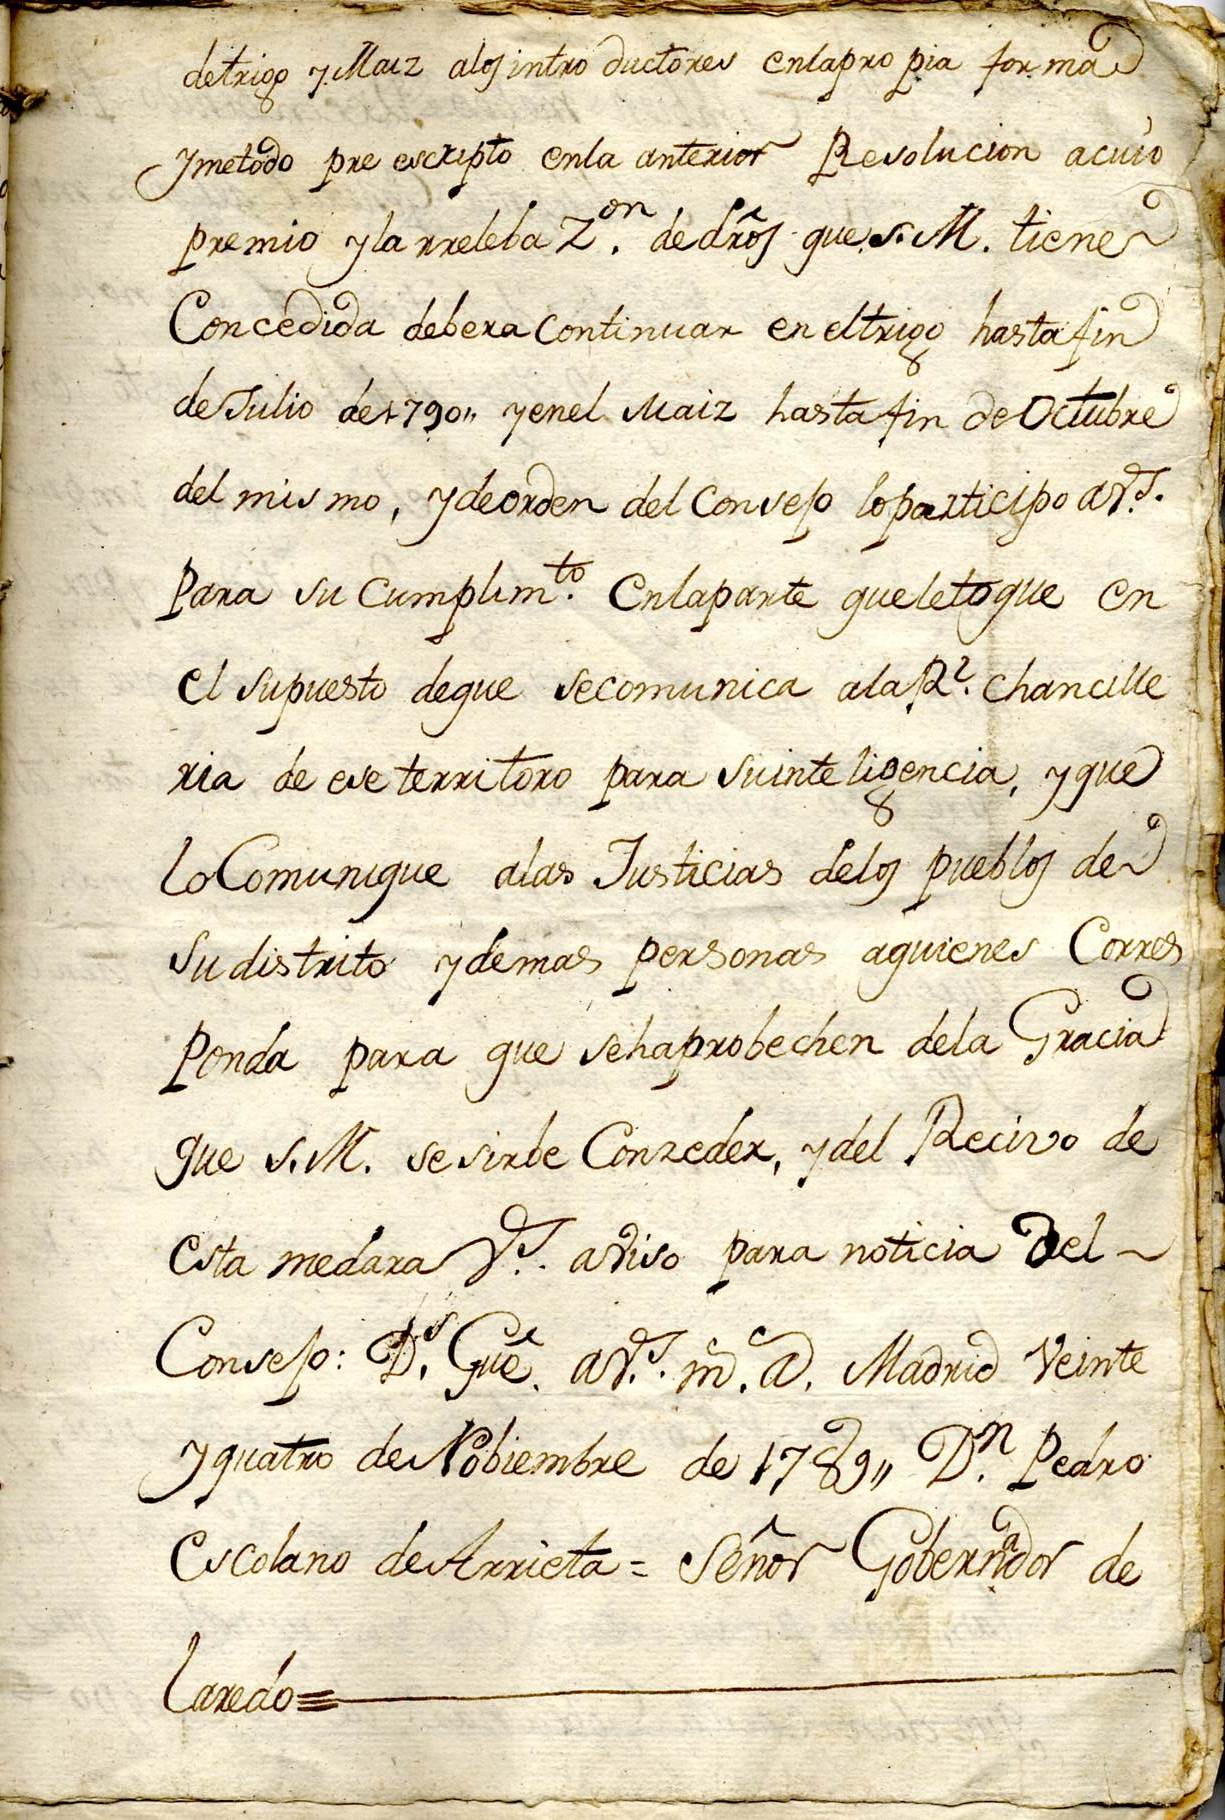 detrigo y Maiz alos intro ductores enlapro pia forma
ymetodo pre escripto enla anterior Resolucion acuio
premio yla rreleba Z.on de dr̂os que s. M. tiene
Concedida debera continuar en eltrigo hasta fin
de Julio de 1790,, yenel Maiz hasta fin de Octubre
del mismo, ydeorden del Consejo loparticipo aVS.
Para su Cumplim.to enlaparte queletoque en
el supuesto deque secomunica ala Rl. Chancille
ria de ese territoro para suinteligencia, yque
lo Comunique alas Justicias delos pueblos de
sudistrito ydemas personas aquienes Corres
Ponda para que sehaprobechen dela Gracia
que S. M. sesirbe Conzeder, ydel Recivo de
esta medara VS. aviso para noticia Del ~
Consejo: D.s Gûe. aVS. m̂. â. Madrid Veinte
yquatro de Nobiembre de 1789,, D.n Pedro
Escolano de Arrieta = Señor Gobernador de
Laredo =